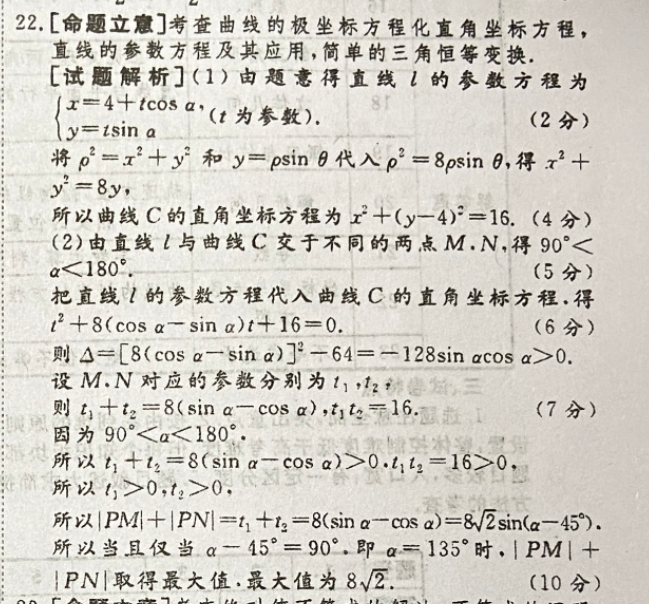 22.[命题立意]考查曲线的极坐标方程化直角坐标方程,
直线的参数方程及其应用,简单的三角恒等变换.
[试题解析](1)由题意得直线 l 的参数方程为
{x=4+tcos α,
y=tsin α (t 为参数). (2 分)
将 ρ²=x²+y² 和 y=ρsin θ 代入 ρ²=8ρsin θ,得 x²+
y²=8y,
所以曲线 C 的直角坐标方程为 x²+(y-4)²=16. (4 分)
(2)由直线 l 与曲线 C 交于不同的两点 M,N,得 90°<
α<180°. (5 分)
把直线 l 的参数方程代入曲线 C 的直角坐标方程,得
t²+8(cos α-sin α)t+16=0. (6 分)
则 Δ=[8(cos α-sin α)]²-64=-128sin αcos α>0.
设 M,N 对应的参数分别为 t₁,t₂,
则 t₁+t₂=8(sin α-cos α),t₁t₂=16. (7 分)
因为 90°<α<180°,
所以 t₁+t₂=8(sin α-cos α)>0,t₁t₂=16>0,
所以 t₁>0,t₂>0,
所以|PM|+|PN|=t₁+t₂=8(sin α-cos α)=8√2sin(α-45°).
所以当且仅当 α-45°=90°,即 α=135°时,|PM|+
|PN|取得最大值,最大值为 8√2. (10 分)